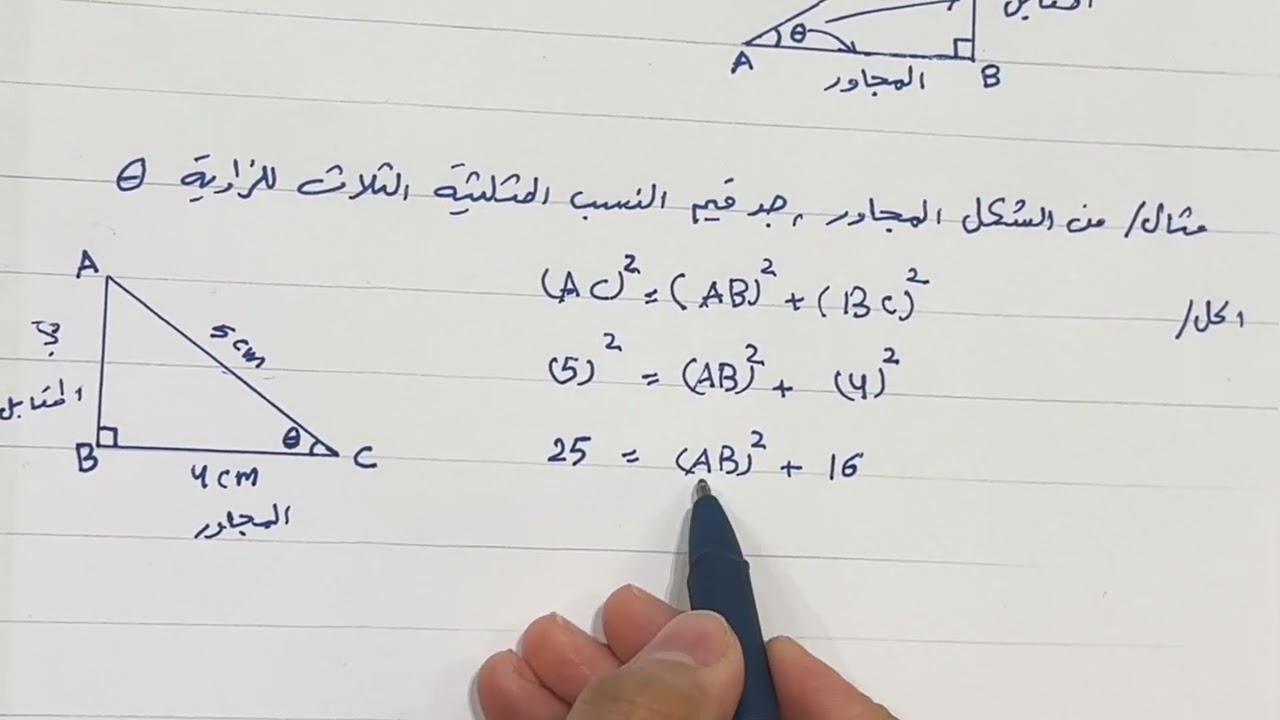 المقابل
θ
A
B
المجاور
مثال/ من الشكل المجاور , جد قيم النسب المثلثية الثلاث للزاوية θ
الحل/
(AC)² = (AB)² + (BC)²
(5)² = (AB)² + (4)²
25 = (AB)² + 16
A
5 cm
؟
المقابل
B
θ
C
4 cm
المجاور